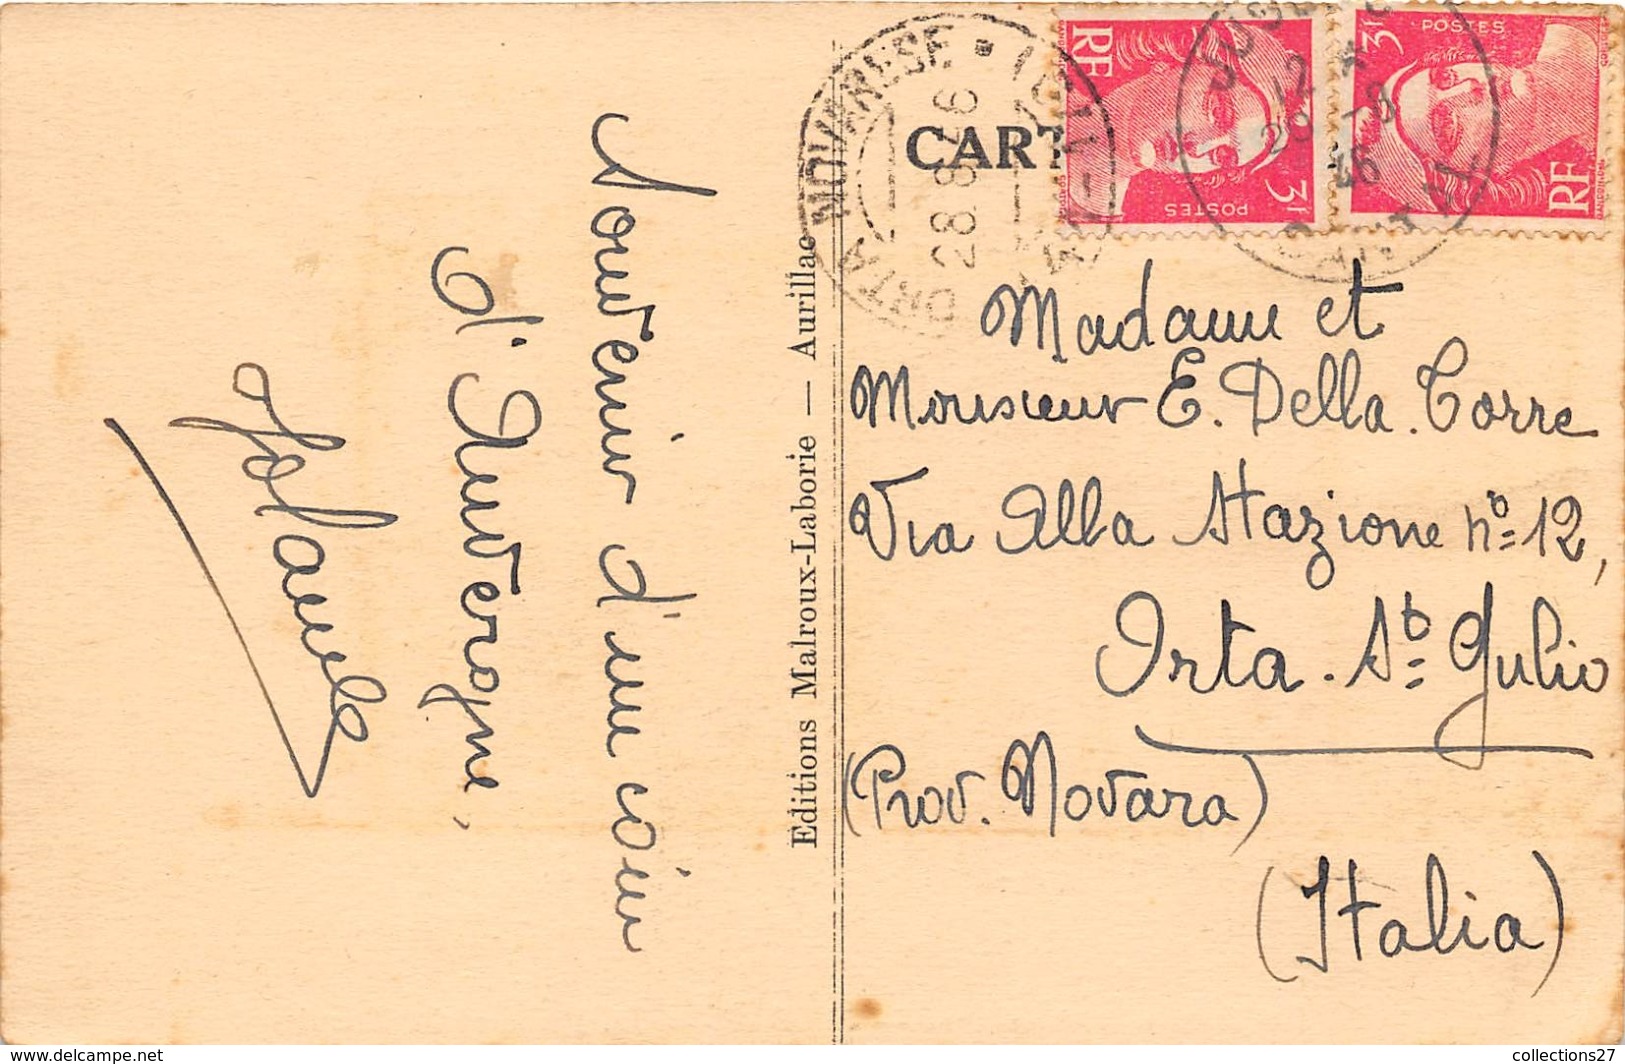 Souvenir d'un coin
d'Auvergne,
Yolande
Editions Malroux-Laborie — Aurillac
CART
RF
POSTES
3F
POSTES
3F
RF
ORTA NOVARESE
28.8.46
12
20 -8
46
CANTAL
Madame et
Monsieur E. Della. Torre
Via Alla Stazione nº 12,
Orta. Sto Giulio
(Prov. Novara)
(Italia)
collections27
www.delcampe.net